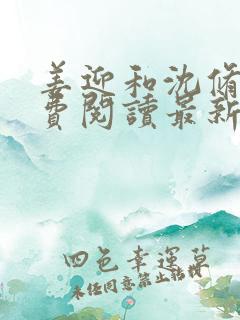 姜迎和沈脩
費閱讀最新
四色幸運草
未經同意禁止轉載